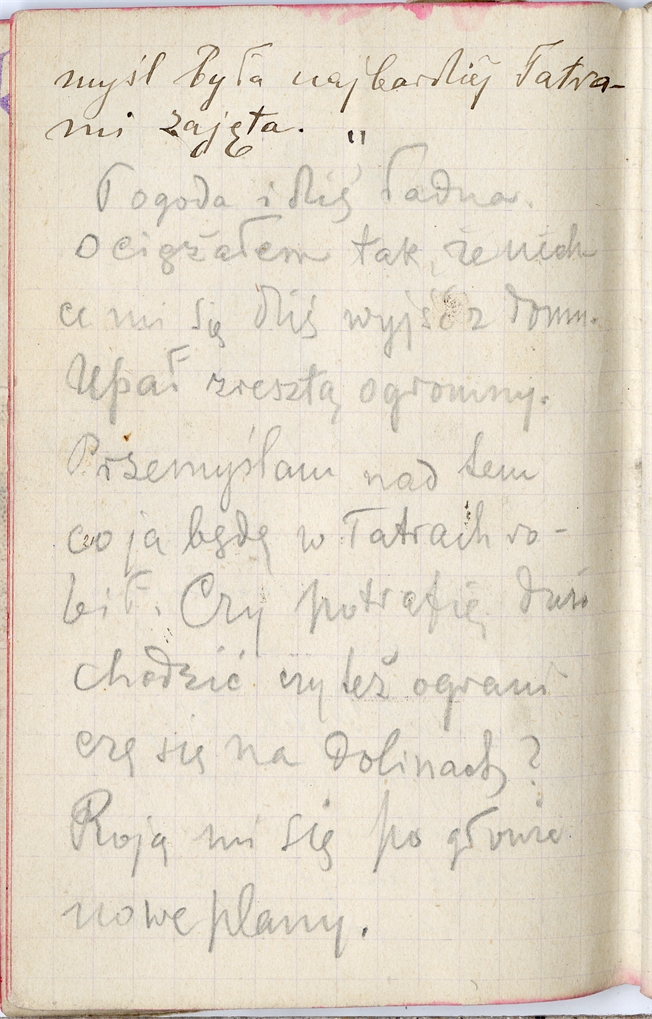 myśl była najbardziej Tatra-
mi zajęta. "
Pogoda i dziś ładna.
Ociężałem tak, że niech-
ce mi się dziś wyjść z domu.
Upał zresztą ogromny.
Przemyślam nad tem
co ja będę w Tatrach ro-
bił. Czy potrafię dużo
chodzić czy też ograni
czę się na dolinach?
Roją mi się po głowie
nowe plany.